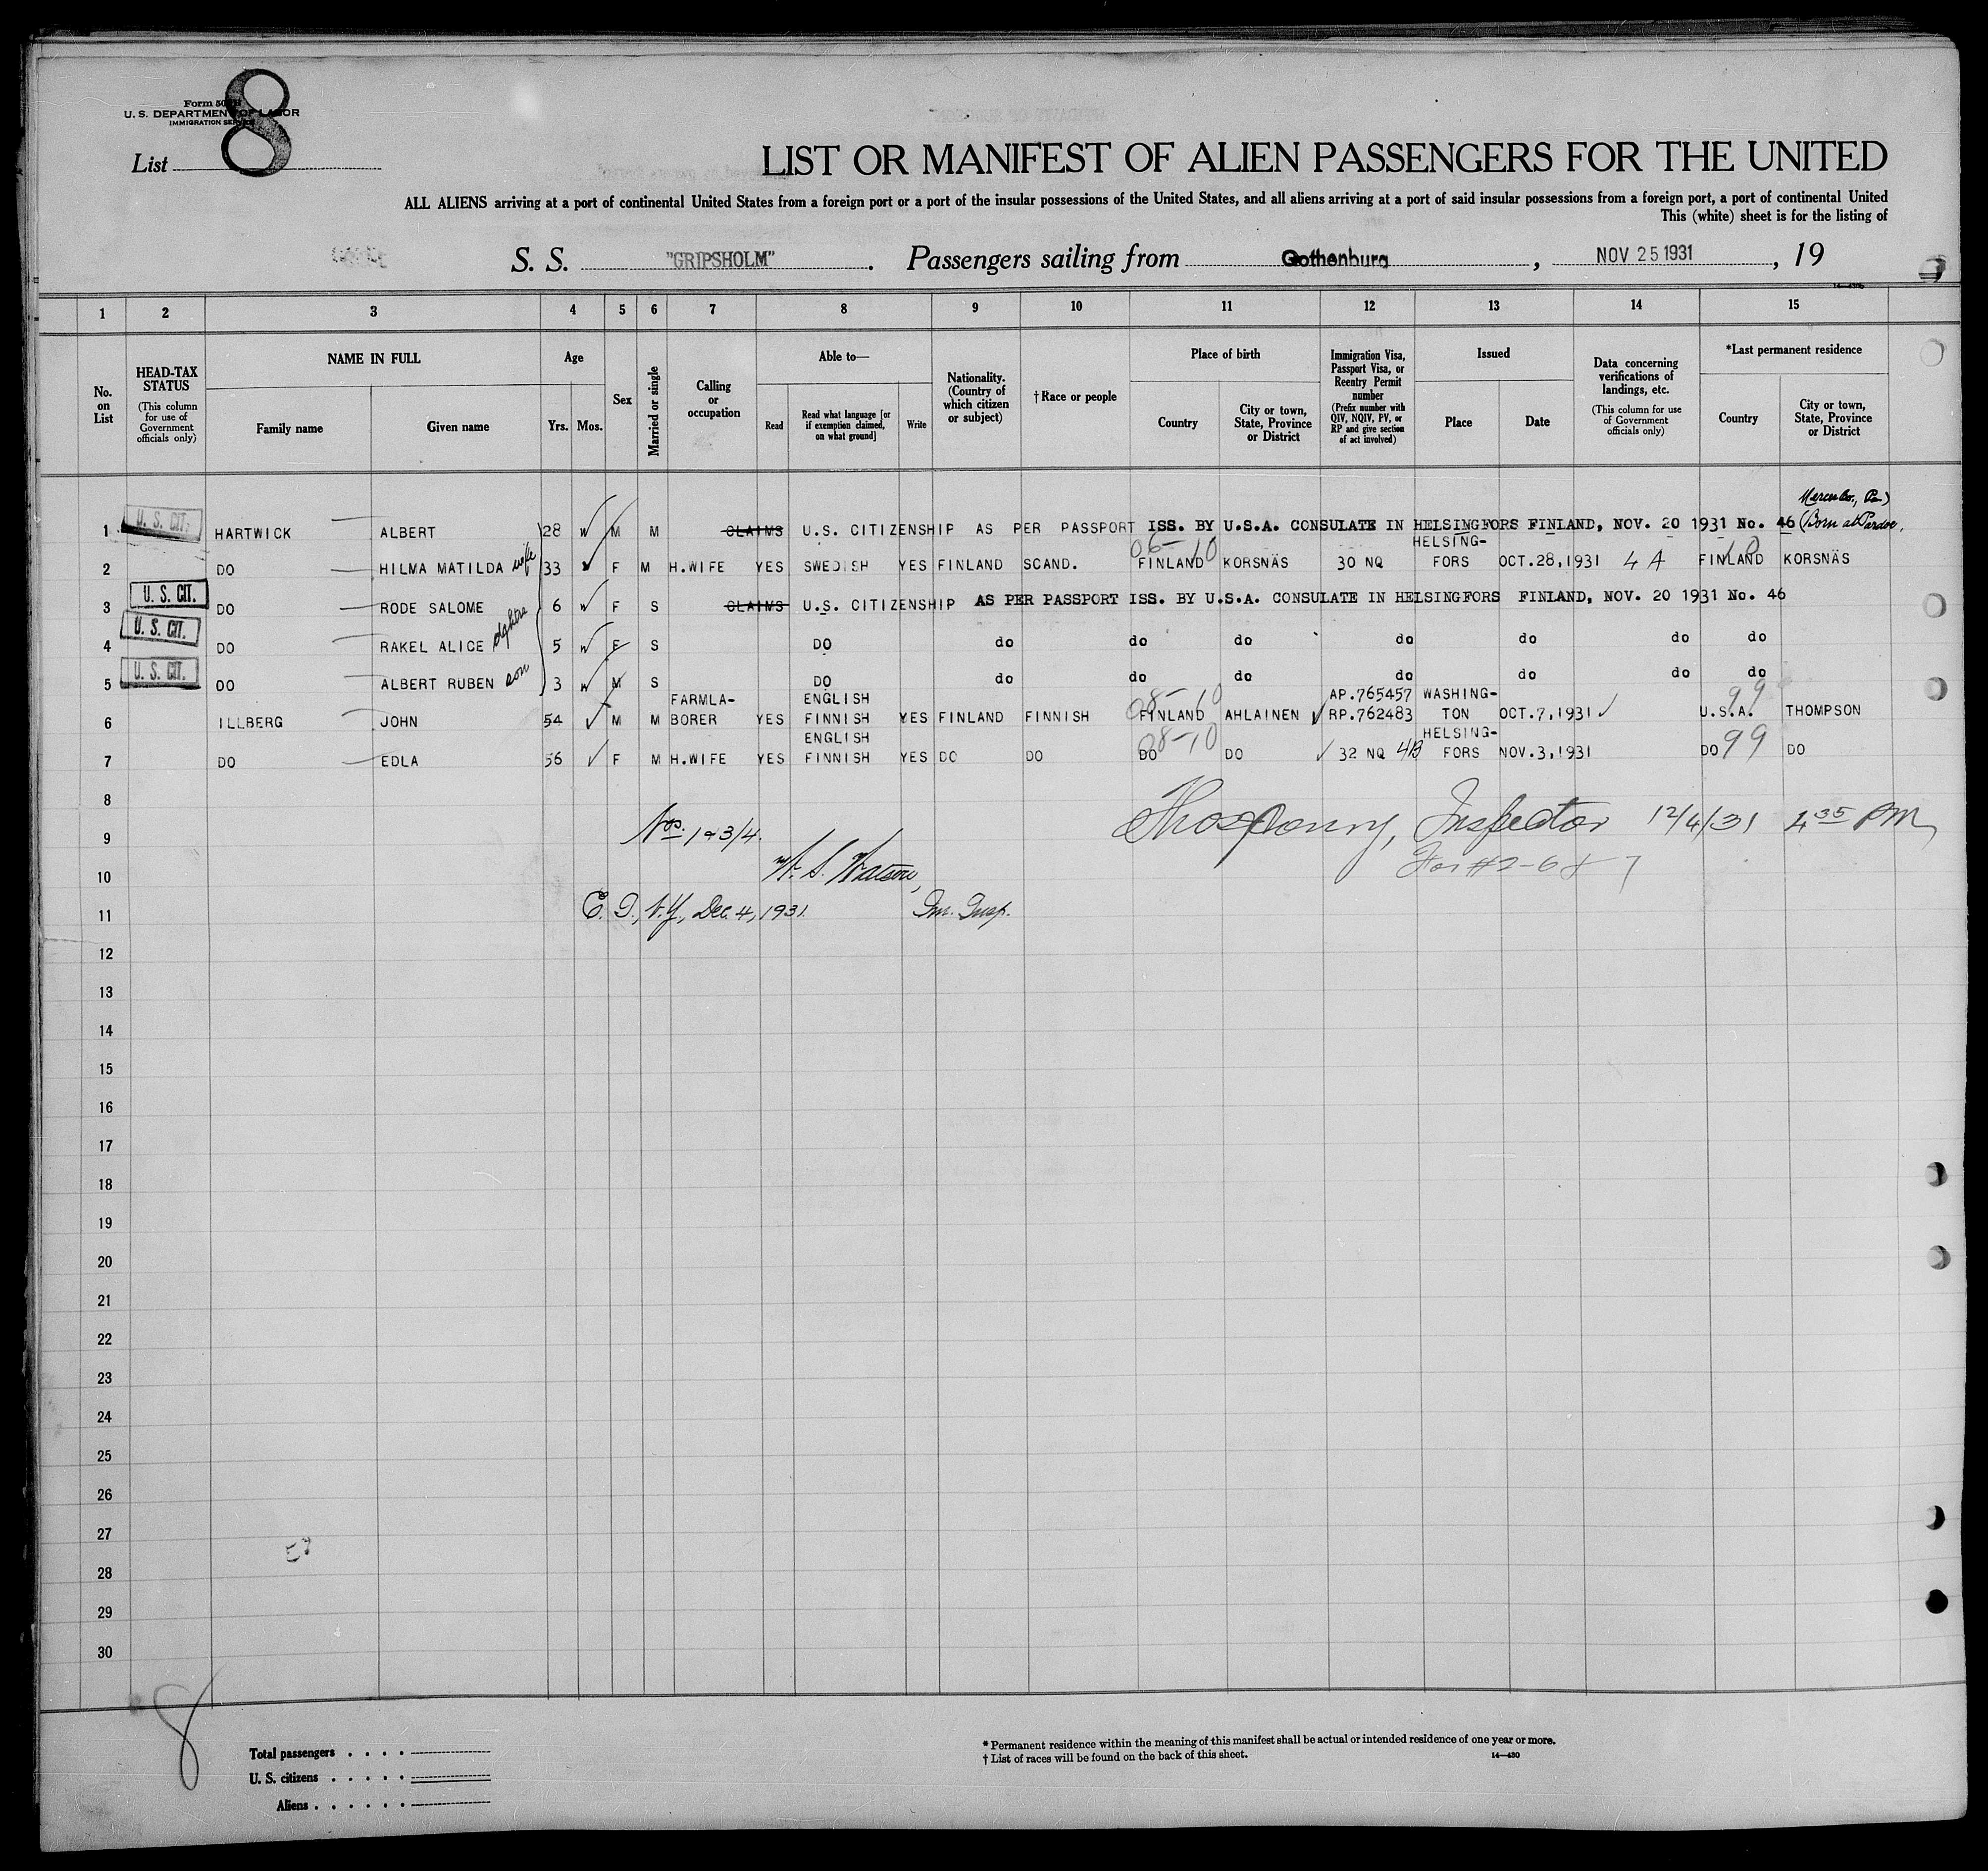 8
Form 500
U. S. DEPARTMENT OF LABOR
IMMIGRATION SERVICE
List
LIST OR MANIFEST OF ALIEN PASSENGERS FOR THE UNITED
ALL ALIENS arriving at a port of continental United States from a foreign port or a port of the insular possessions of the United States, and all aliens arriving at a port of said insular possessions from a foreign port, a port of continental United
This (white) sheet is for the listing of
S. S. "GRIPSHOLM". Passengers sailing from Gothenburg, NOV 25 1931, 19
1 2 3 4 5 6 7 8 9 10 11 12 13 14 15
No. on List
HEAD-TAX STATUS (This column for use of Government officials only)
NAME IN FULL
Family name Given name
Age
Yrs. Mos.
Sex
Married or single
Calling or occupation
Able to—
Read Read what language [or if exemption claimed, on what ground] Write
Nationality. (Country of which citizen or subject)
†Race or people
Place of birth
Country City or town, State, Province or District
Immigration Visa, Passport Visa, or Reentry Permit number (Prefix number with QIV, NQIV, PV, or RP and give section of act involved)
Issued
Place Date
Data concerning verifications of landings, etc. (This column for use of Government officials only)
*Last permanent residence
Country City or town, State, Province or District
Mercer Co., Pa)
1 U. S. CIT. HARTWICK ALBERT 28 M M CLAIMS U.S. CITIZENSHIP AS PER PASSPORT ISS. BY U.S.A. CONSULATE IN HELSINGFORS FINLAND, NOV. 20 1931 No. 46 (Born at Pardoe,
2 DO HILMA MATILDA wife 33 F M H.WIFE YES SWEDISH YES FINLAND SCAND. 06-10 FINLAND KORSNÄS 30 NQ HELSING-FORS OCT.28,1931 4 A FINLAND 10 KORSNÄS
3 U. S. CIT. DO RODE SALOME 6 F S CLAIMS U.S. CITIZENSHIP AS PER PASSPORT ISS. BY U.S.A. CONSULATE IN HELSINGFORS FINLAND, NOV. 20 1931 No. 46
4 U. S. CIT. DO RAKEL ALICE 5 F S DO do do do do do do do
5 U. S. CIT. DO ALBERT RUBEN son 3 M S DO do do do do do do do
6 ILLBERG JOHN 54 M M FARMLA-BORER YES ENGLISH FINNISH YES FINLAND FINNISH 08-10 FINLAND AHLAINEN AP.765457 RP.762483 WASHING-TON OCT.7,1931 U.S.A. 99 THOMPSON
7 DO EDLA 56 F M H.WIFE YES ENGLISH FINNISH YES DO DO 08-10 DO DO 32 NQ 4B HELSING-FORS NOV.3,1931 DO 99 DO
8
Inspector 12/4/31 4 35 PM
9 Nos. 1 & 3/4.
For #2-6 & 7
10 W. S. Watson,
11 E. I., N.Y., Dec. 4, 1931. Im. Insp.
12
13
14
15
16
17
18
19
20
21
22
23
24
25
26
27
28
29
30
8
Total passengers
U. S. citizens
Aliens
*Permanent residence within the meaning of this manifest shall be actual or intended residence of one year or more.
†List of races will be found on the back of this sheet. 14—430